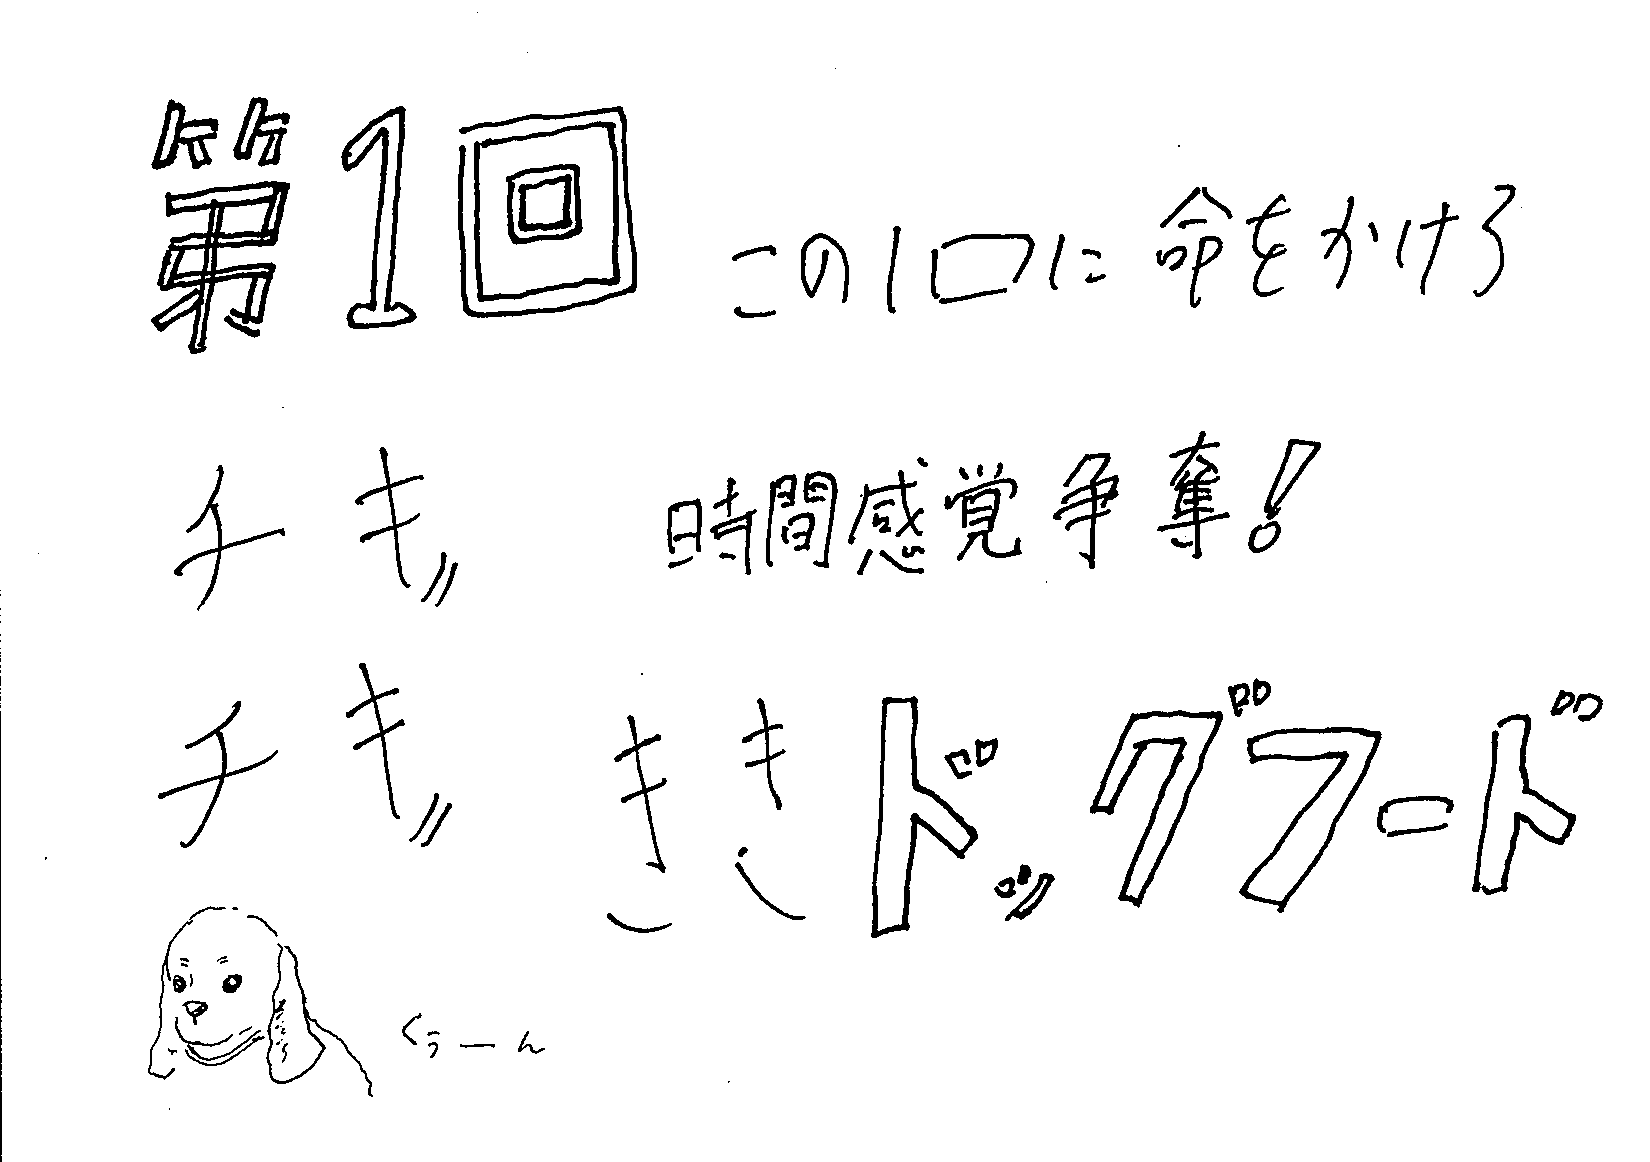 第1回 この1口に命をかけろ
チキ〃 時間感覚争奪!
チキ〃 ききドッグフード
くぅーん